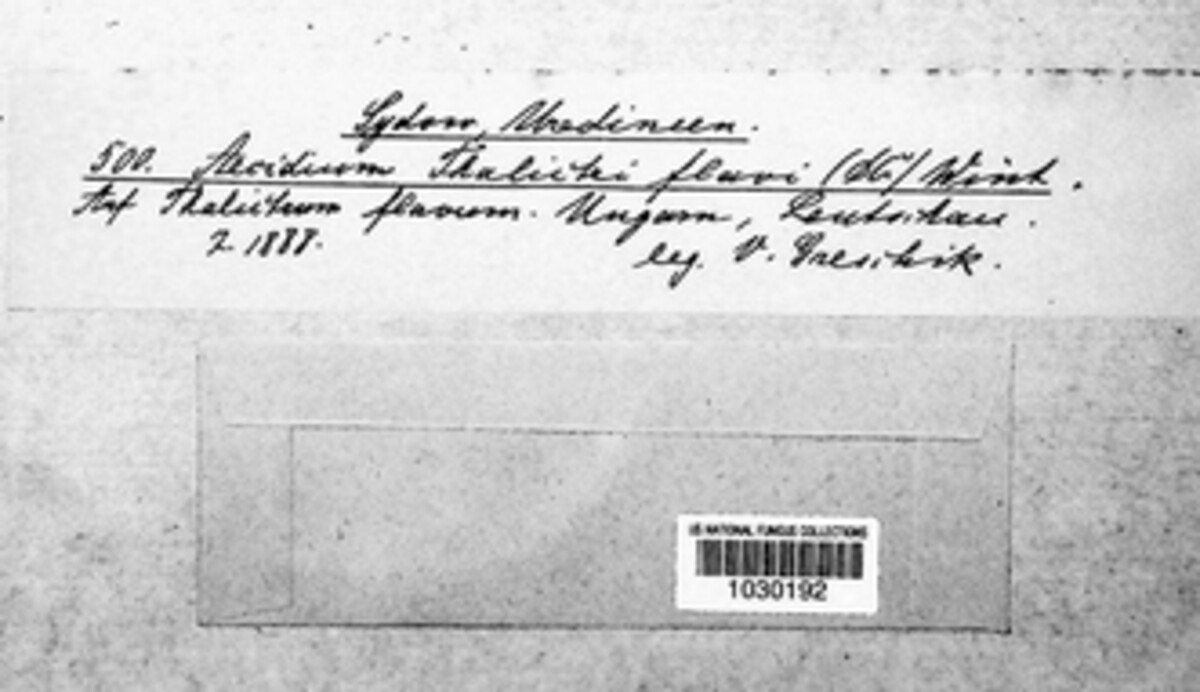 Sydow, Uredineen.
500. Aecidium Thalictri flavi (DC) Wint.
Auf Thalictrum flavum. Ungarn, Leutschau.
7. 1888. leg. V. Greschik.
US NATIONAL FUNGUS COLLECTIONS
1030192